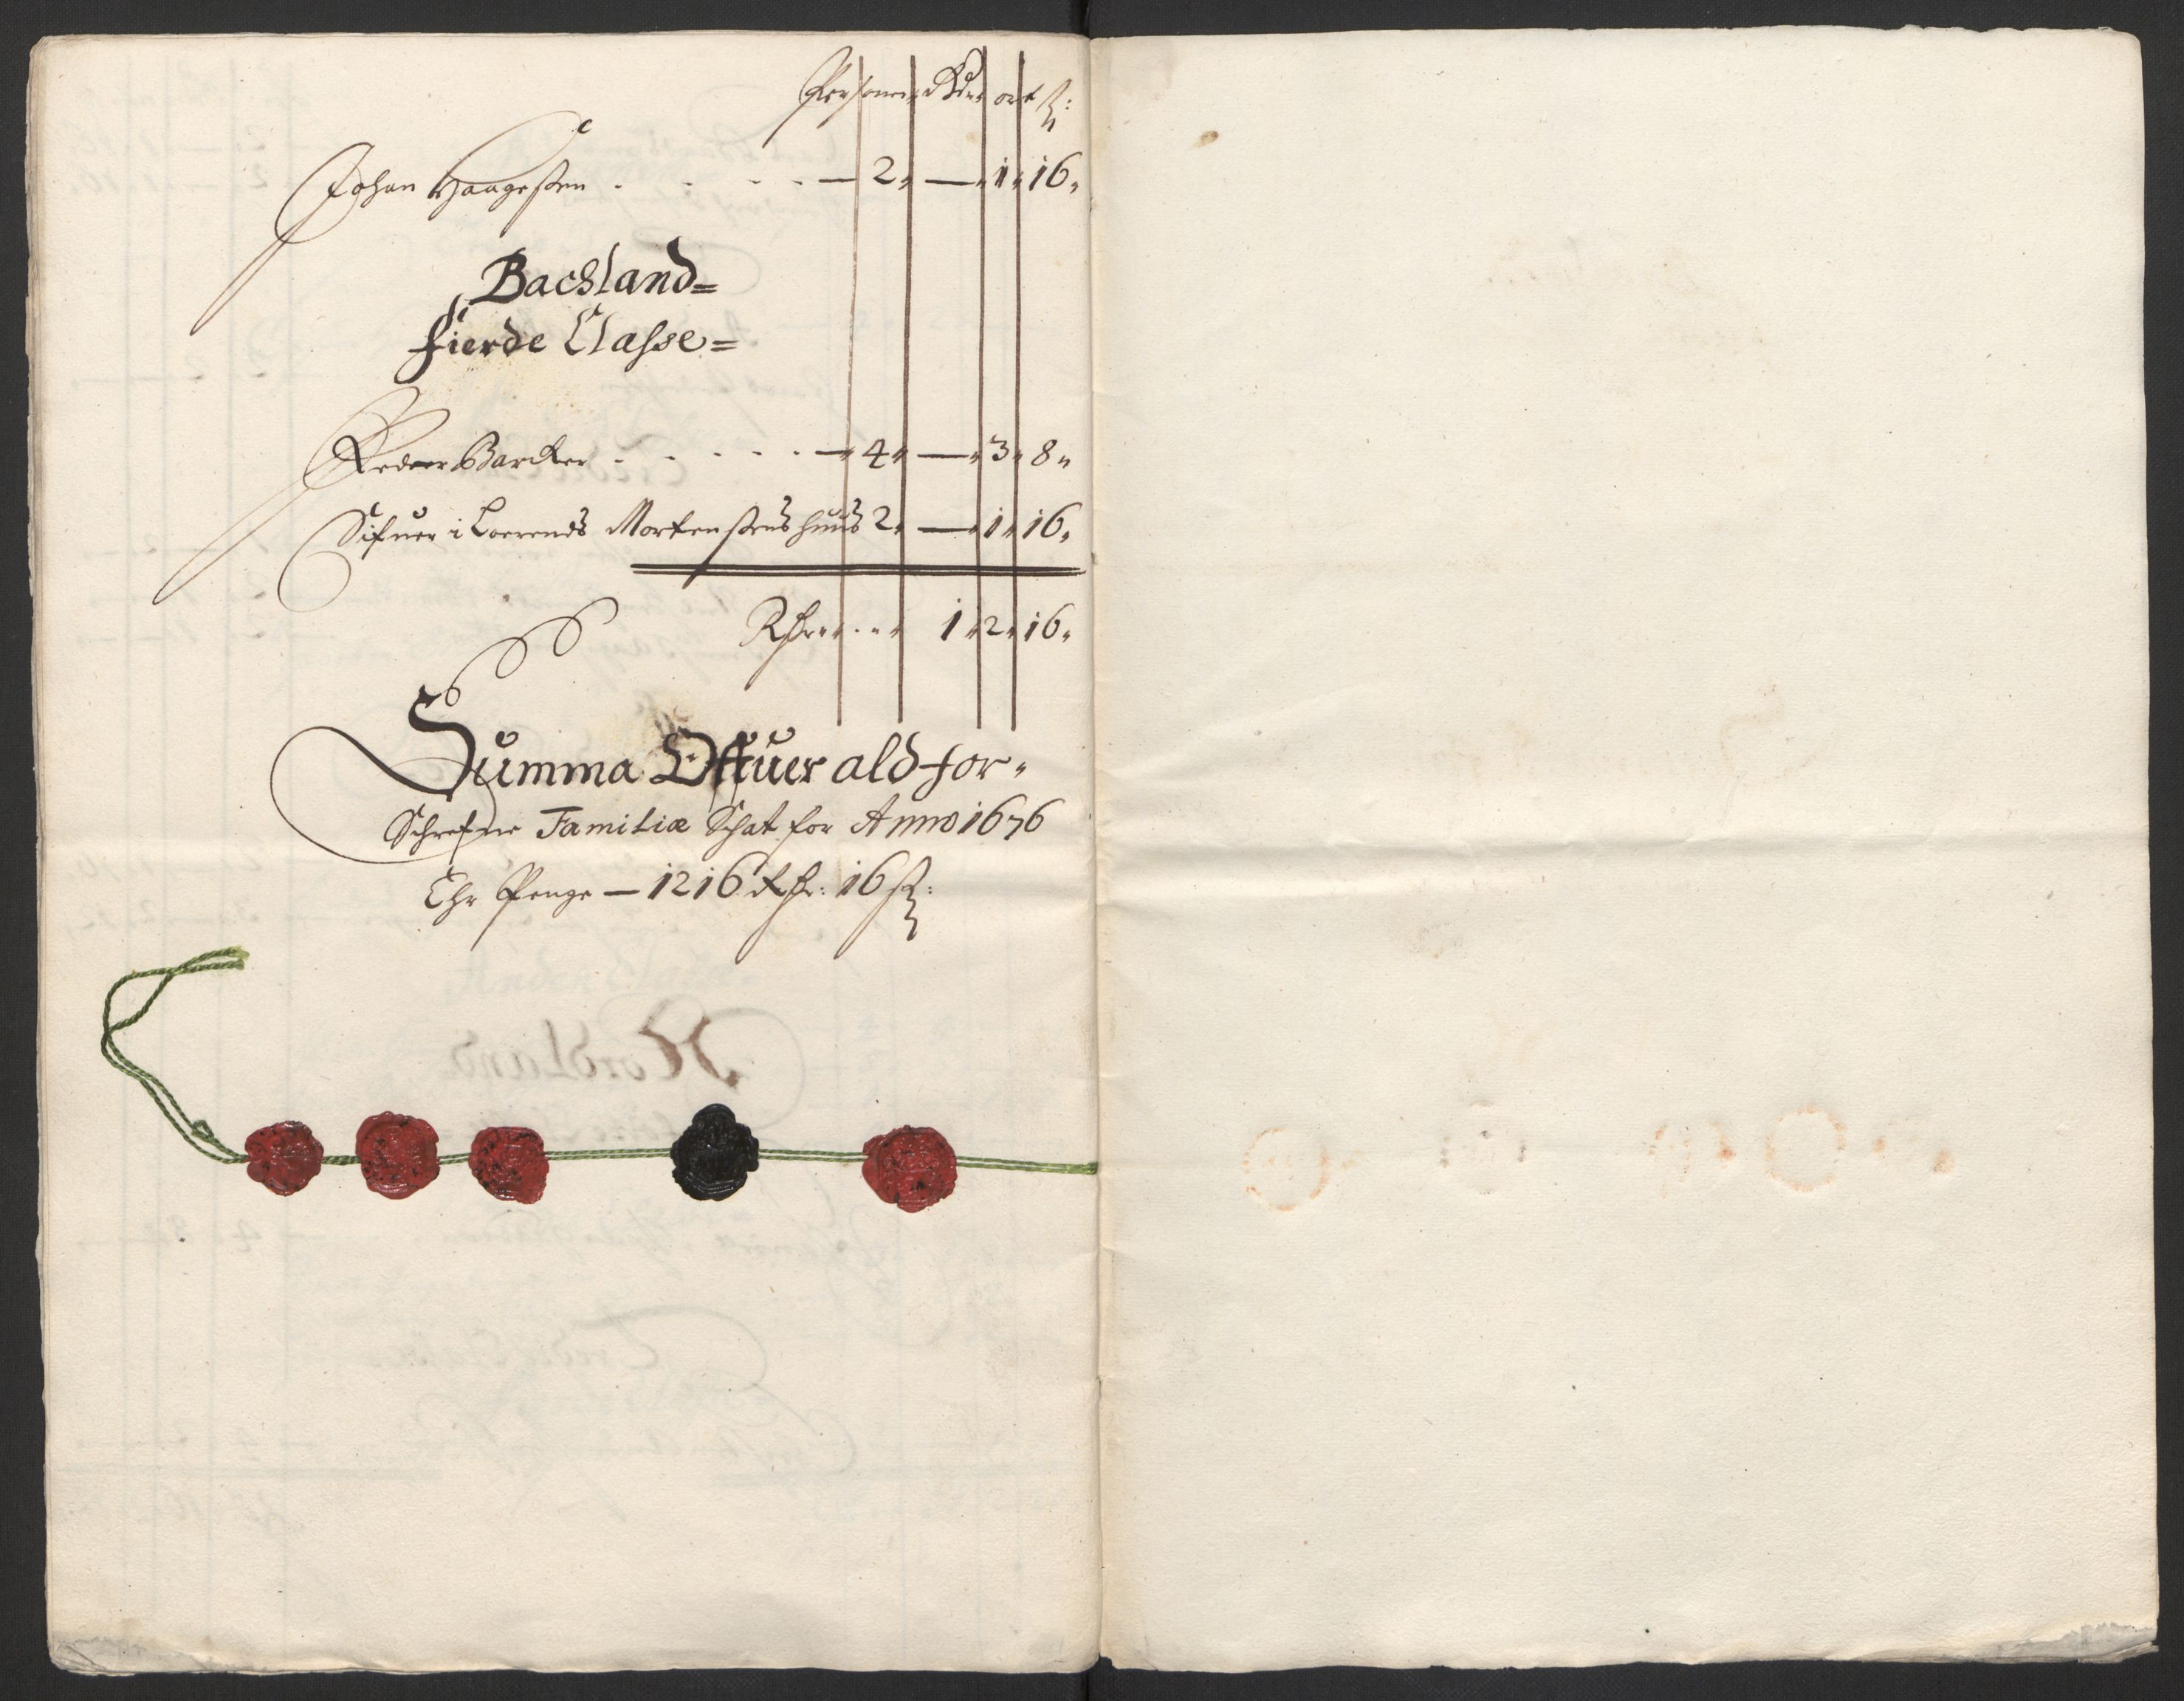 Personer Rdr ort ß:
Johan Haagessen . . . . — 2, — 1, 16,
Backland=
fierde Classe=
Peder Barcker . . . . . — 4, — 3, 8,
Sifuer i Loerends Mortenssens huus 2, — 1, 16,
Rdr . . . 1, 2, 16,
Summa Offuer ald for-
Schrefne Familiæ Schat for Anno 1676
Ehr Penge — 1216 Rdr: 16 ß: